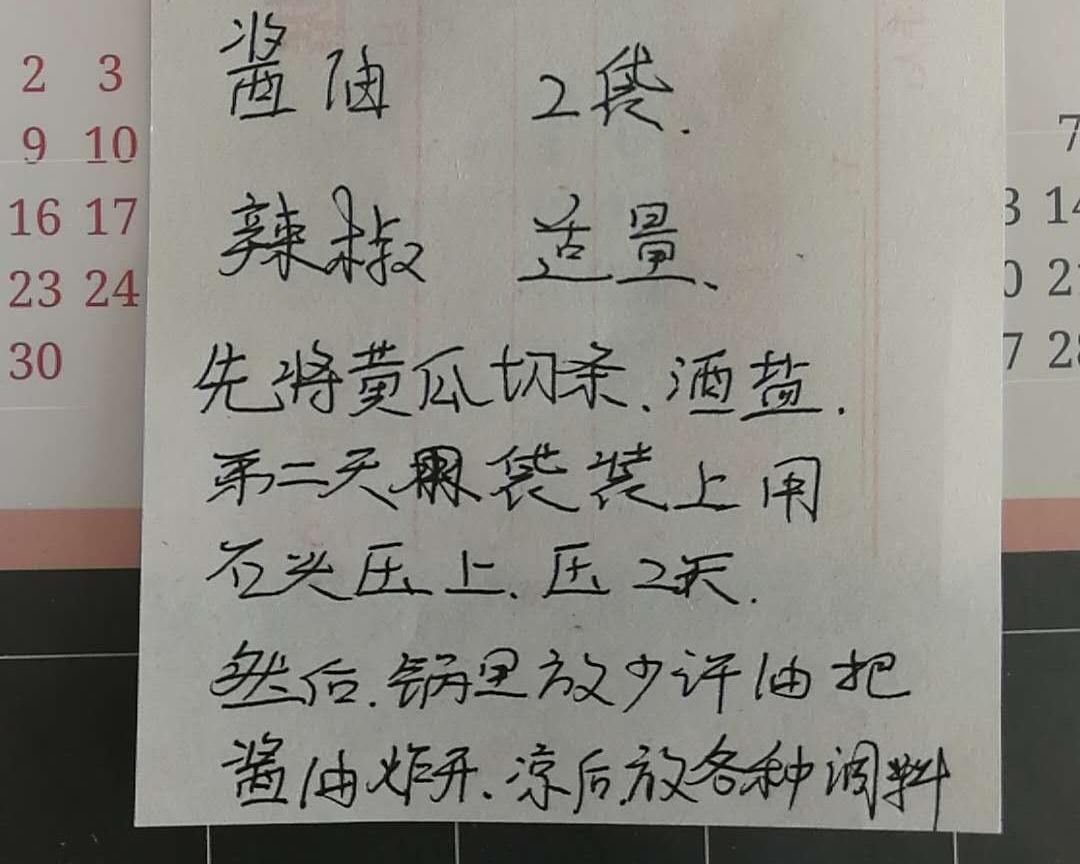 2 3
9 10
16 17
23 24
30
酱油 2袋.
辣椒 适量、
先将黄瓜切条、洒盐.
第二天用袋装上用
石头压上、压2天.
然后.锅里放少许油把
酱油炸开、凉后放各种调料
7
14